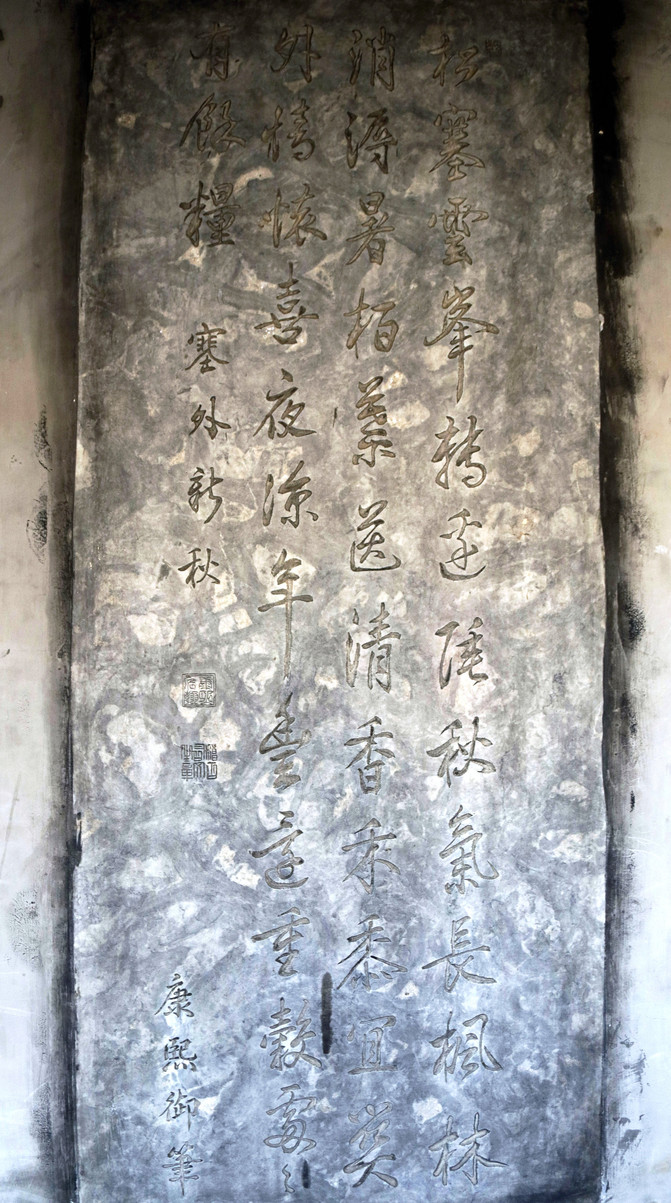 松塞雲峯轉邊陲秋氣長楓林
消溽暑栢葉送清香禾黍宜关
外情懷喜夜涼年豐重穀處〻
有餘糧
塞外新秋
康熙御筆